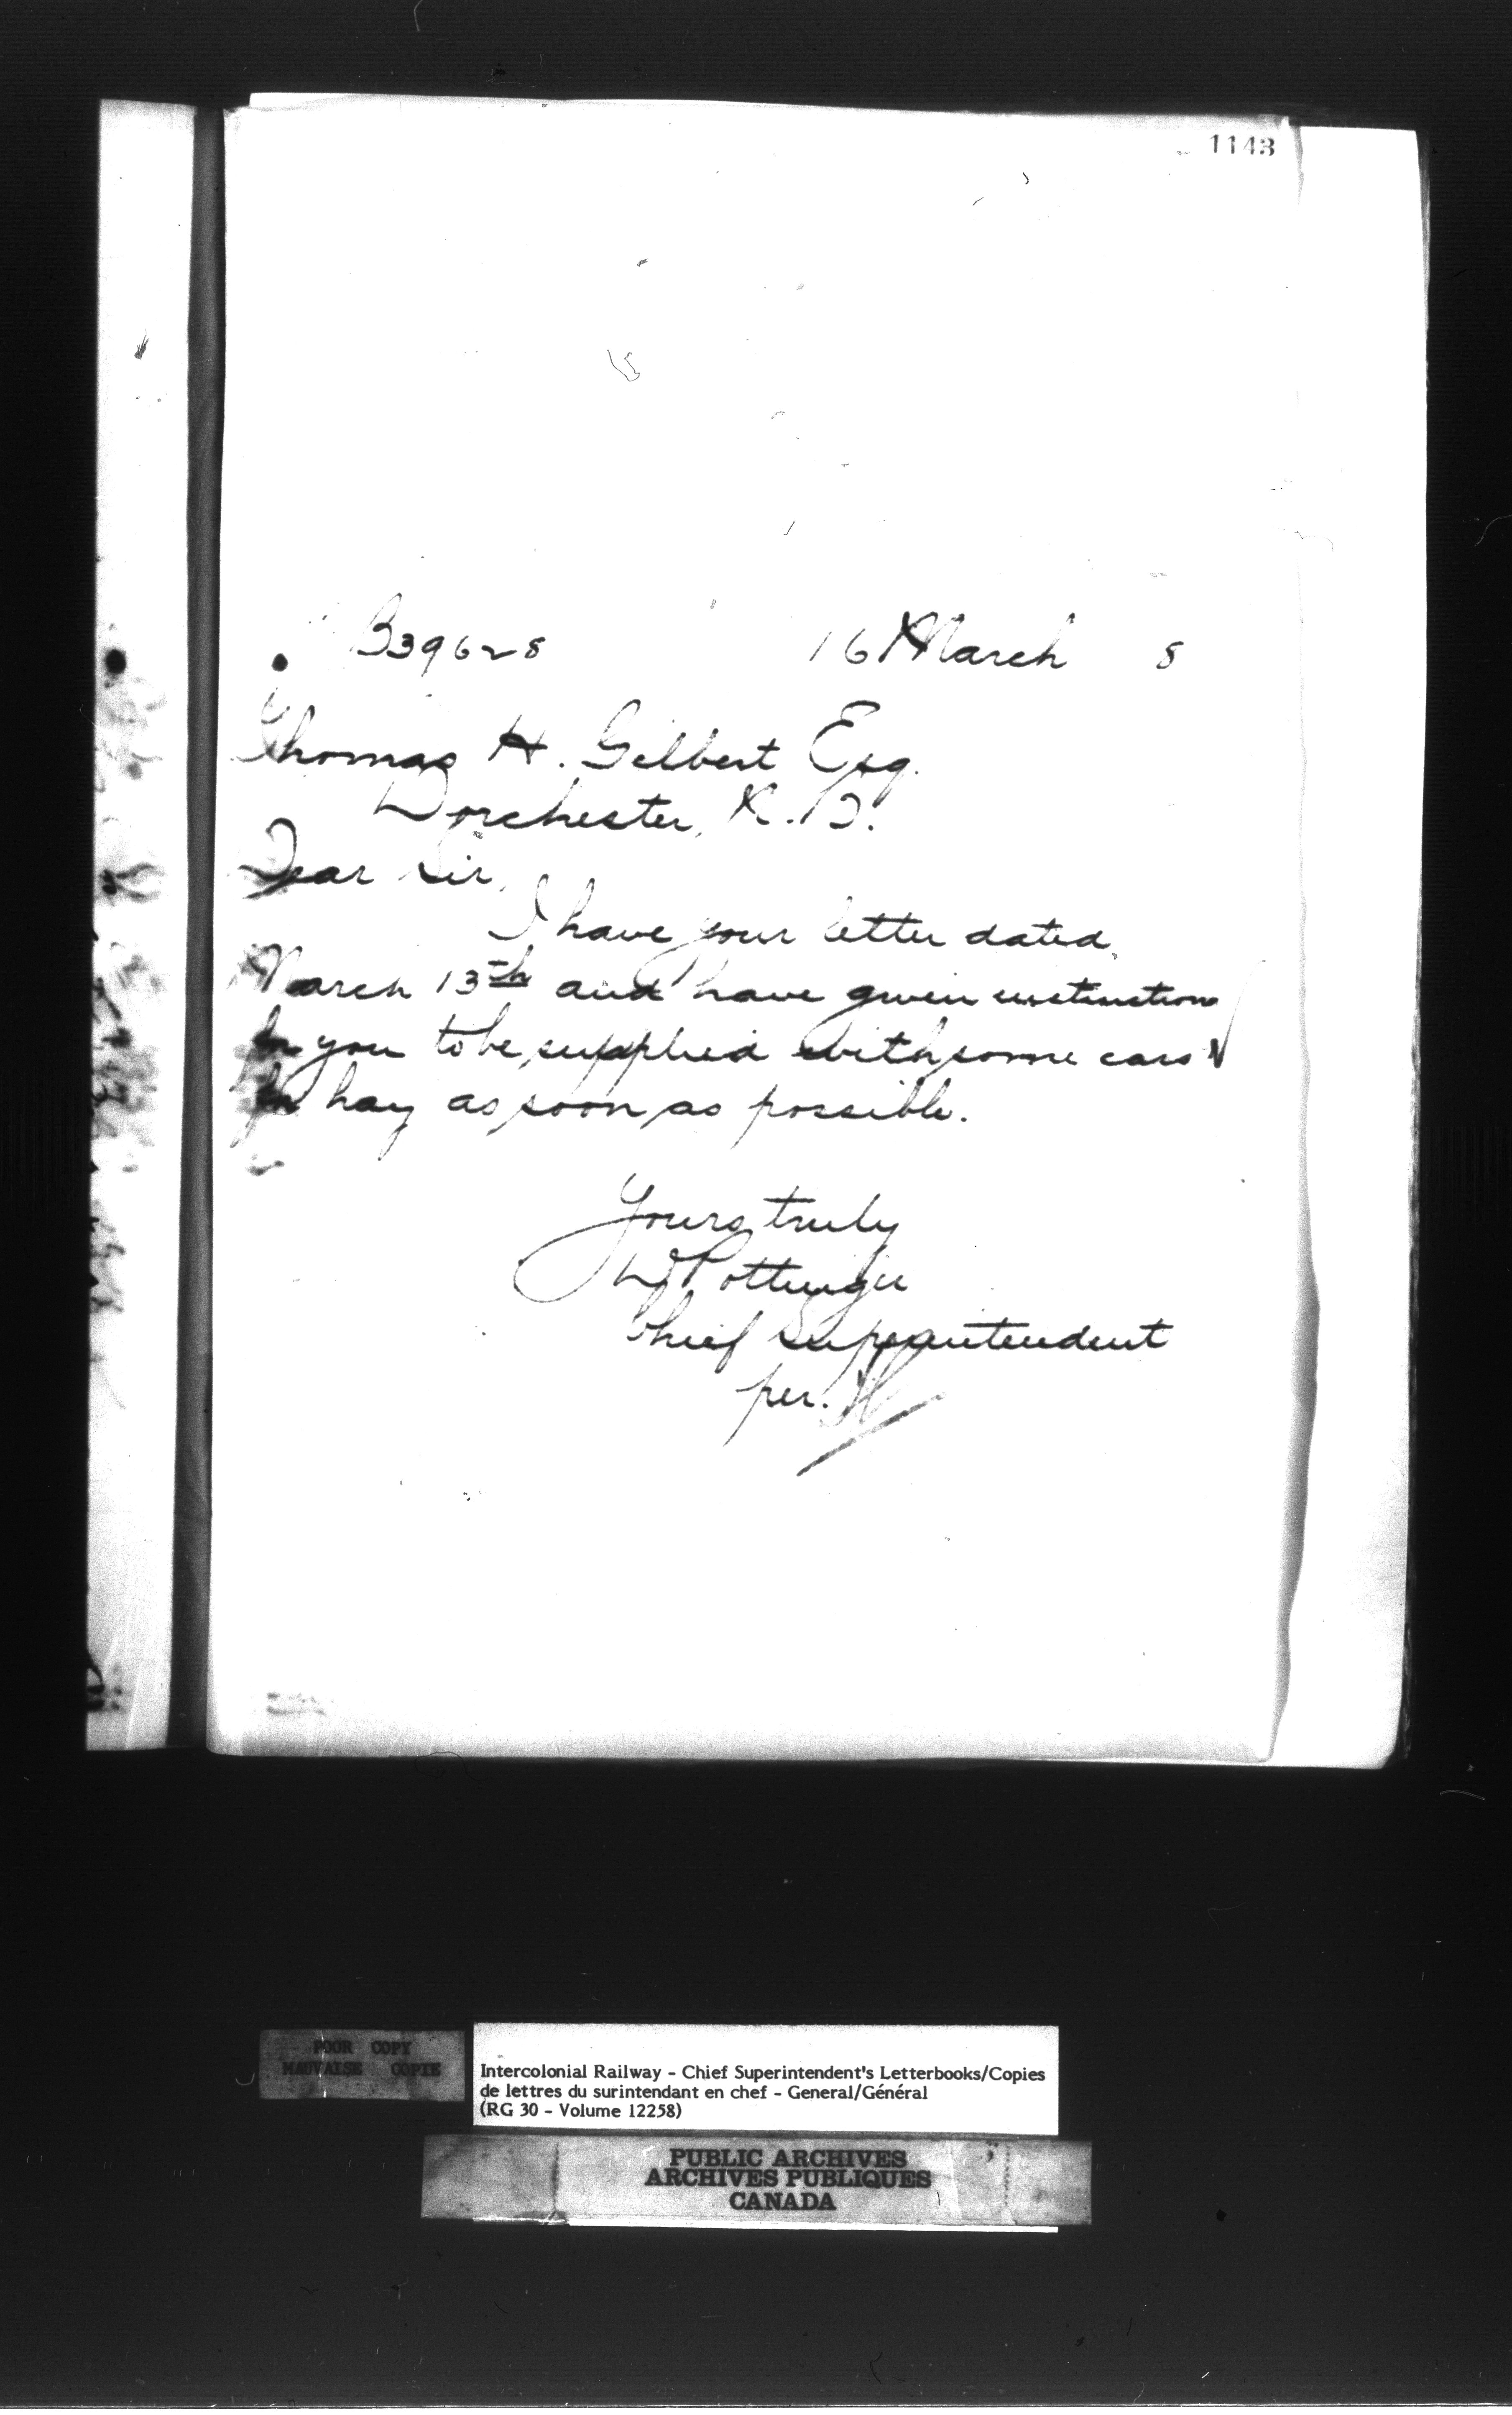 1143
B39628 16 March 8
Thomas H. Gilbert Esq.
Dorchester, N.B.
Dear Sir,
I have your letter dated
March 13th and have given instructions
for you to be supplied with some cars
for hay as soon as possible.
Yours truly
D Pottinger
Chief Superintendent
per.
POOR COPY
MAUVAISE COPIE
Intercolonial Railway - Chief Superintendent's Letterbooks/Copies
de lettres du surintendant en chef - General/Général
(RG 30 - Volume 12258)
PUBLIC ARCHIVES
ARCHIVES PUBLIQUES
CANADA